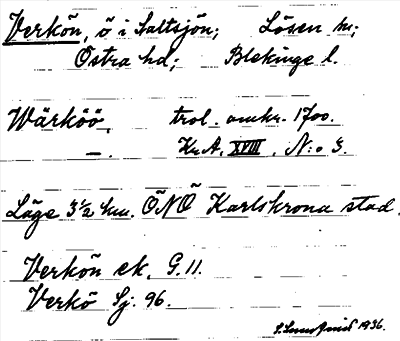 Verkön, ö i Saltsjön; Lösen sn;
Östra hd; Blekinge l.
Wärköö, trol. omkr. 1700.
—. Kr.A. XVIII. N:o 3.
Läge 3½ km. ÖNÖ Karlskrona stad.
Verkön ek. G.11.
Verkö Sj. 96.
1936.